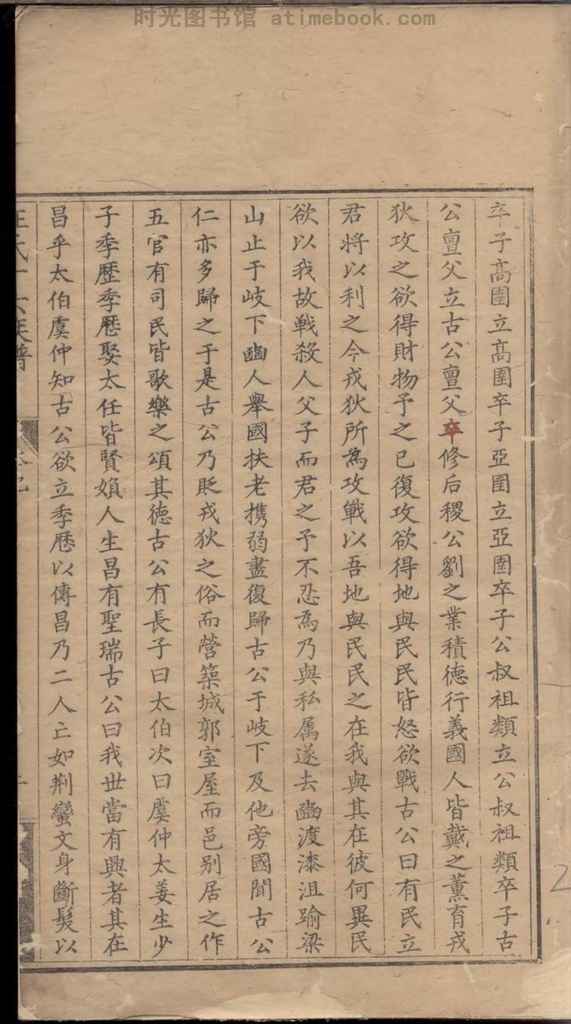 时光图书馆 atimebook.com
卒子高圉立高圉卒子亞圉立亞圉卒子公叔祖類立公叔祖類卒子古
公亶父立古公亶父卒修后稷公劉之業積德行義國人皆戴之薰育戎
狄攻之欲得財物予之已復攻欲得地與民民皆怒欲戰古公曰有民立
君將以利之今戎狄所為攻戰以吾地與民民之在我與其在彼何異民
欲以我故戰殺人父子而君之予不忍為乃與私属遂去豳渡漆沮踰梁
山止于岐下豳人舉國扶老携弱盡復歸古公于岐下及他旁國聞古公
仁亦多歸之于是古公乃貶戎狄之俗而營築城郭室屋而邑别居之作
五官有司民皆歌樂之頌其德古公有長子曰太伯次曰虞仲太姜生少
子季歷季歷娶太任皆賢媍人生昌有聖瑞古公曰我世當有興者其在
昌乎太伯虞仲知古公欲立季歷以傳昌乃二人亡如荆蠻文身斷髮以
氏十六族譜
2